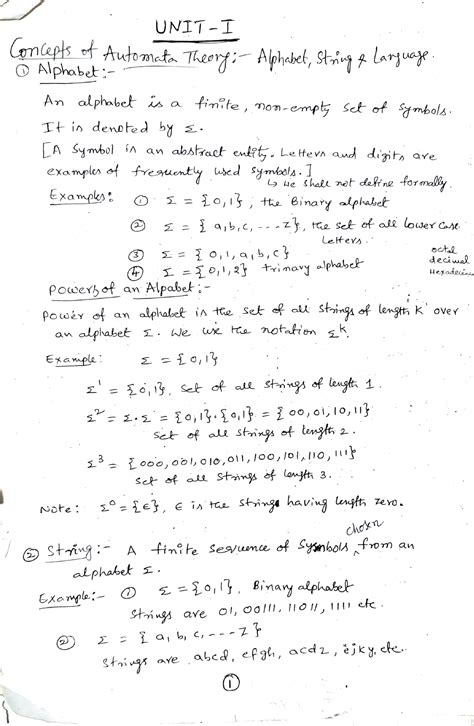 UNIT-I
Concepts of Automata Theory:- Alphabet, String & Language.
① Alphabet:-
An alphabet is a finite, non-empty set of symbols.
It is denoted by Σ.
[A Symbol is an abstract entity. Letters and digits are
examples of frequently used symbols.]
↳ We shall not define formally.
Examples: ① Σ = {0,1}, the Binary alphabet
② Σ = {a,b,c,---z}, the set of all lower case
letters.
③ Σ = {0,1,a,b,c}
④ Σ = {0,1,2} trinary alphabet
octal
decimal
Hexadecimal
Powers of an Alpabet:-
Power of an alphabet is the set of all strings of length 'K' over
an alphabet Σ. We use the notation Σ^K.
Example: Σ = {0,1}
Σ^1 = {0,1}, set of all strings of length 1.
Σ^2 = Σ.Σ = {0,1}.{0,1} = {00,01,10,11}
set of all strings of length 2.
Σ^3 = {000,001,010,011,100,101,110,111}
set of all strings of length 3.
Note: Σ^0 = {ϵ}, ϵ is the string having length zero.
② String:- A finite sequence of symbols chosen from an
alphabet Σ.
Example:- ① Σ = {0,1}, Binary alphabet
Strings are 01, 00111, 11011, 1111 etc.
② Σ = {a,b,c,---z}
Strings are abcd, efgh, acdz, ejky, etc.
①